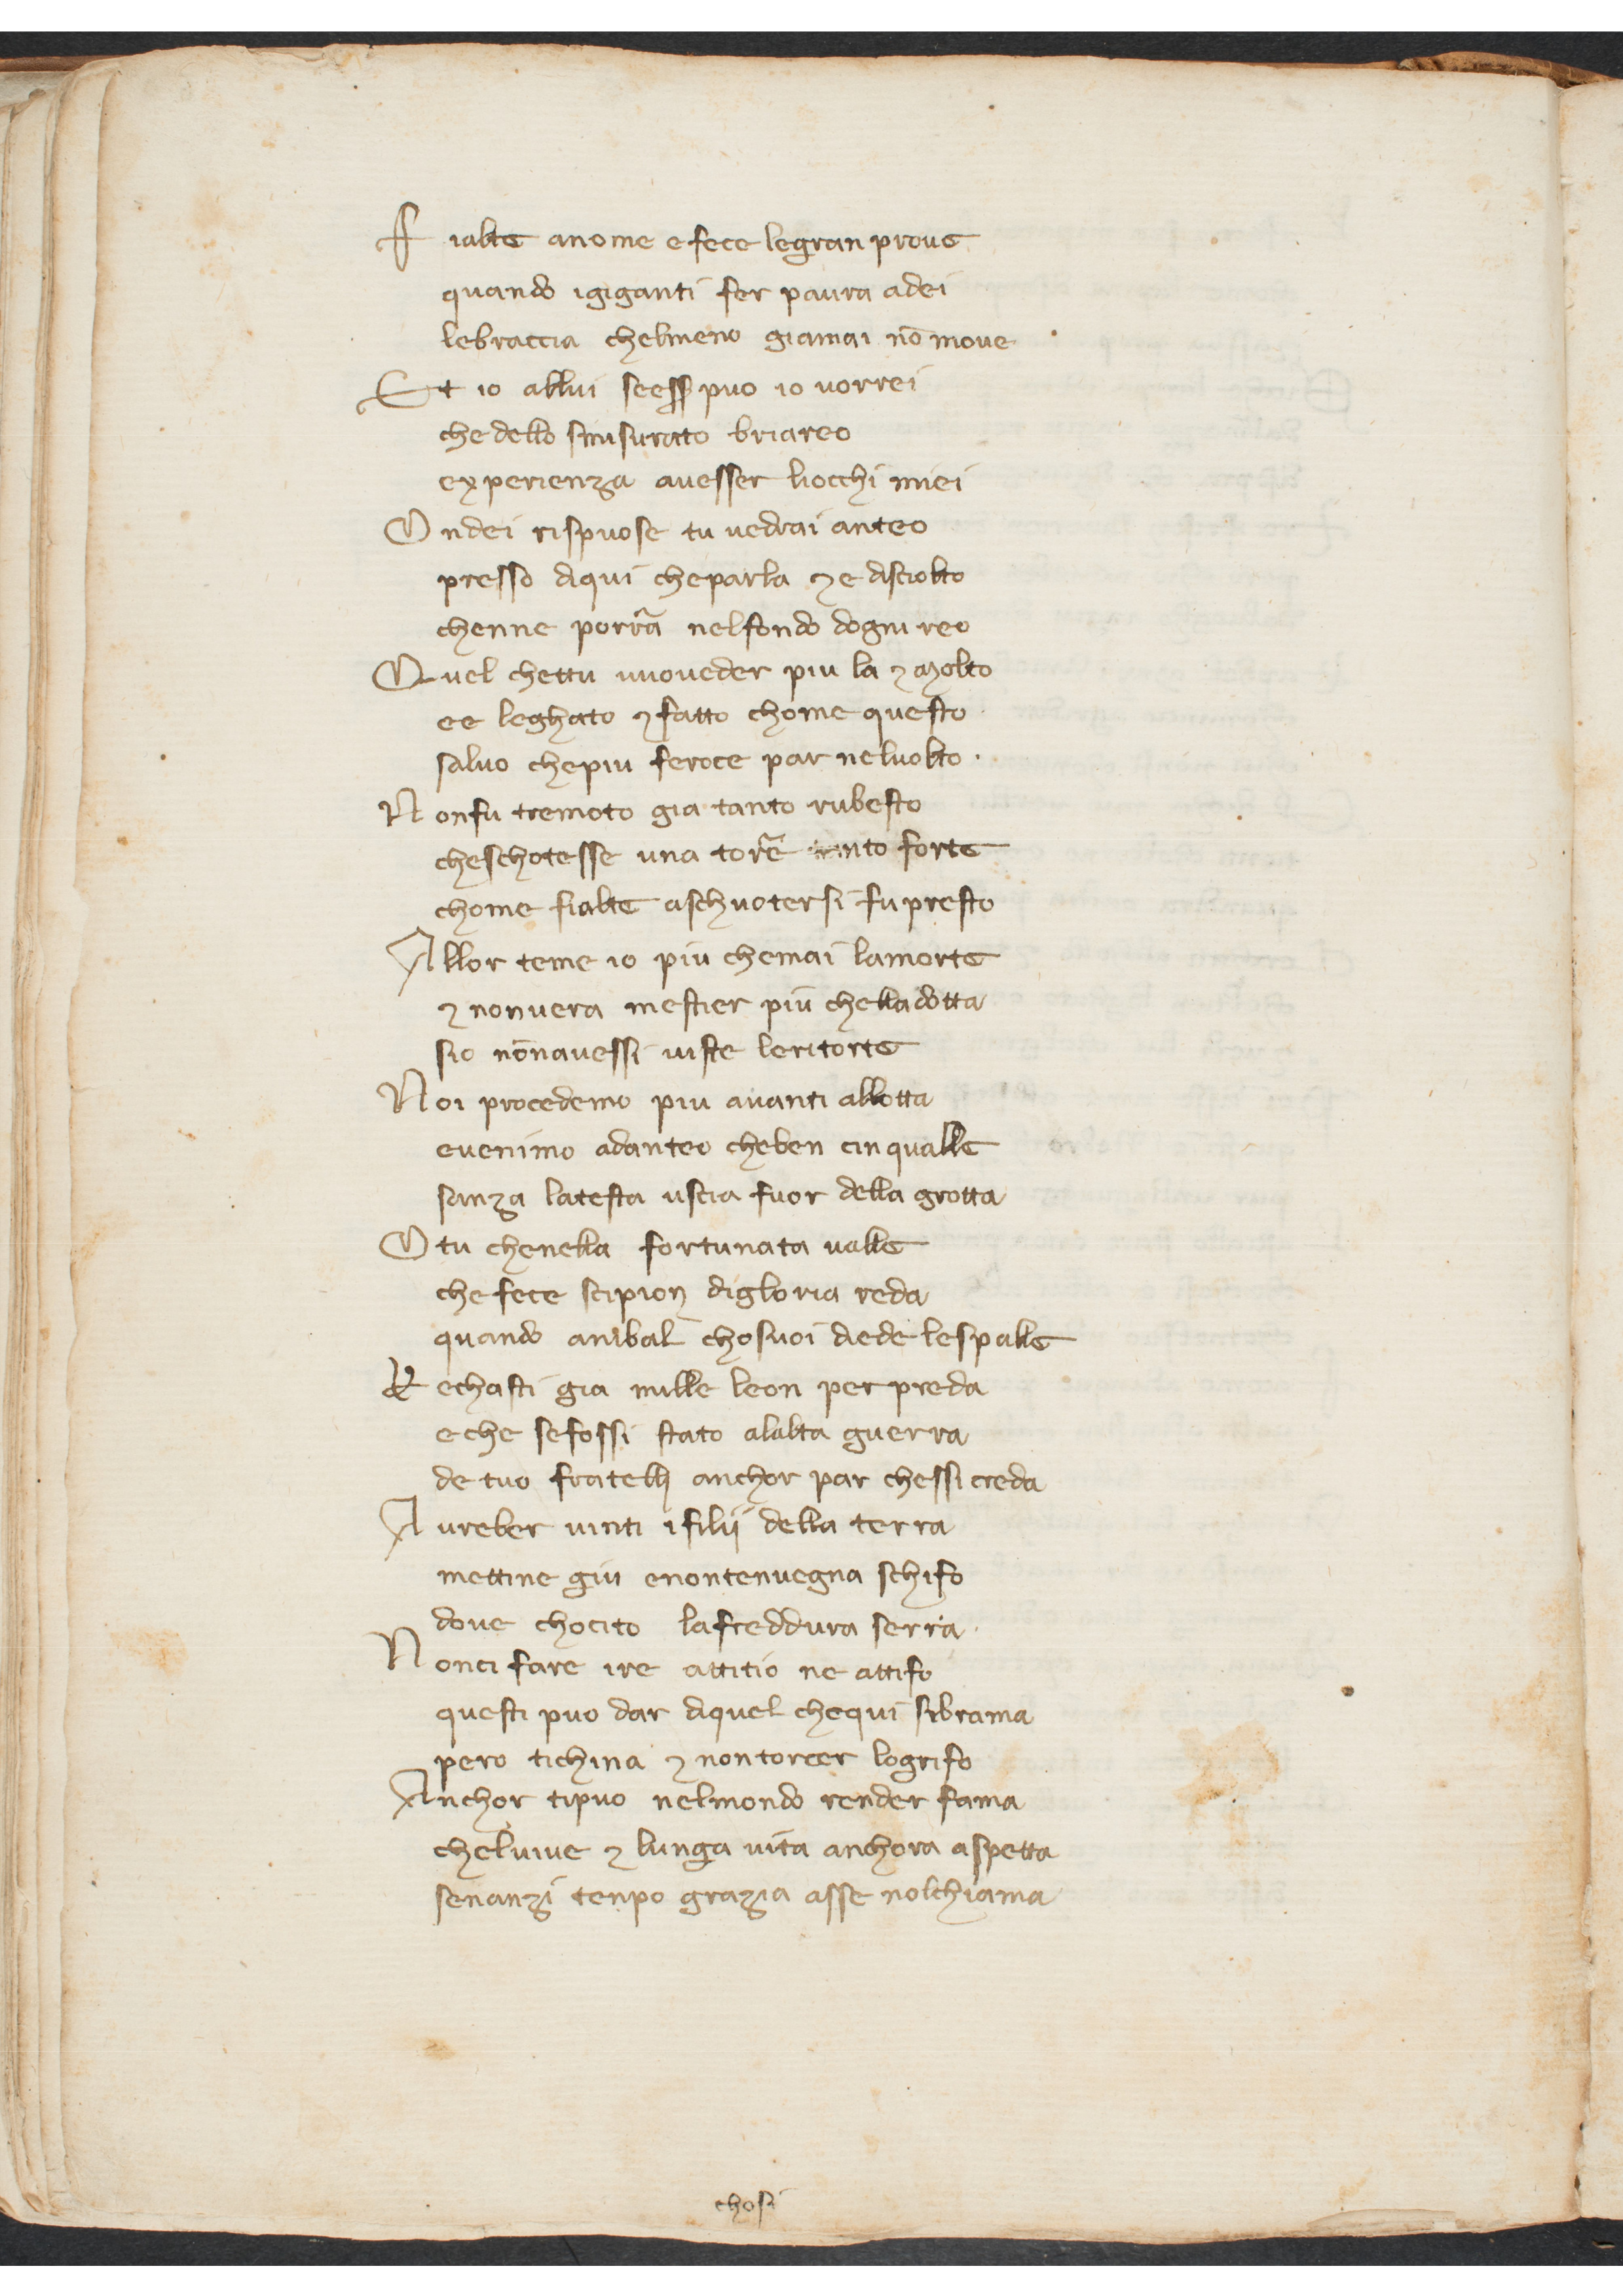 Fialte anome e fece legran proue
quando igiganti fer paura adei
lebraccia chelmeno giamai nō moue
Et io allui seesser puo io uorrei
che dello smisurato briareo
experienza auesser liocchi miei
Ondei rispuose tu uedrai anteo
presso diqui cheparla ⁊ e disciolto
chenne porrà nelfondo dogni reo
Quel chettu uuoueder piu la ⁊ molto
ee leghato ⁊ fatto chome questo
saluo chepiu feroce par neluolto ·
Nonfu tremoto gia tanto rubesto
cheschotesse una torre tanto forte
chome fialte aschuotersi fu presto
Allor teme io piu chemai lamorte
⁊ nonuera mestier piu chelladotta
sio nonauessi uiste leritorte
Noi procedemo piu auanti allotta
euenimo adanteo cheben cinqualle
sanza latesta uscia fuor della grotta
O tu chenella fortunata ualle
che fece scipion digloria reda
quando anibal chosuoi diede lespalle
Rechasti gia mille leon per preda
e che sefossi stato alalta guerra
de tuo fratelli anchor par chessi creda
Aureber uinti i filij della terra
mettine giu enontenuegna schifo
doue chocito lafreddura serra ·
Nonci fare ire attitio ne attifo
questi puo dar diquel chequi sibrama
pero tichina ⁊ non torcer logrifo
Anchor tipuo nelmondo render fama
cheluiue ⁊ lunga uita anchora aspetta
senanzi tenpo grazia asse nolchiama
chosi